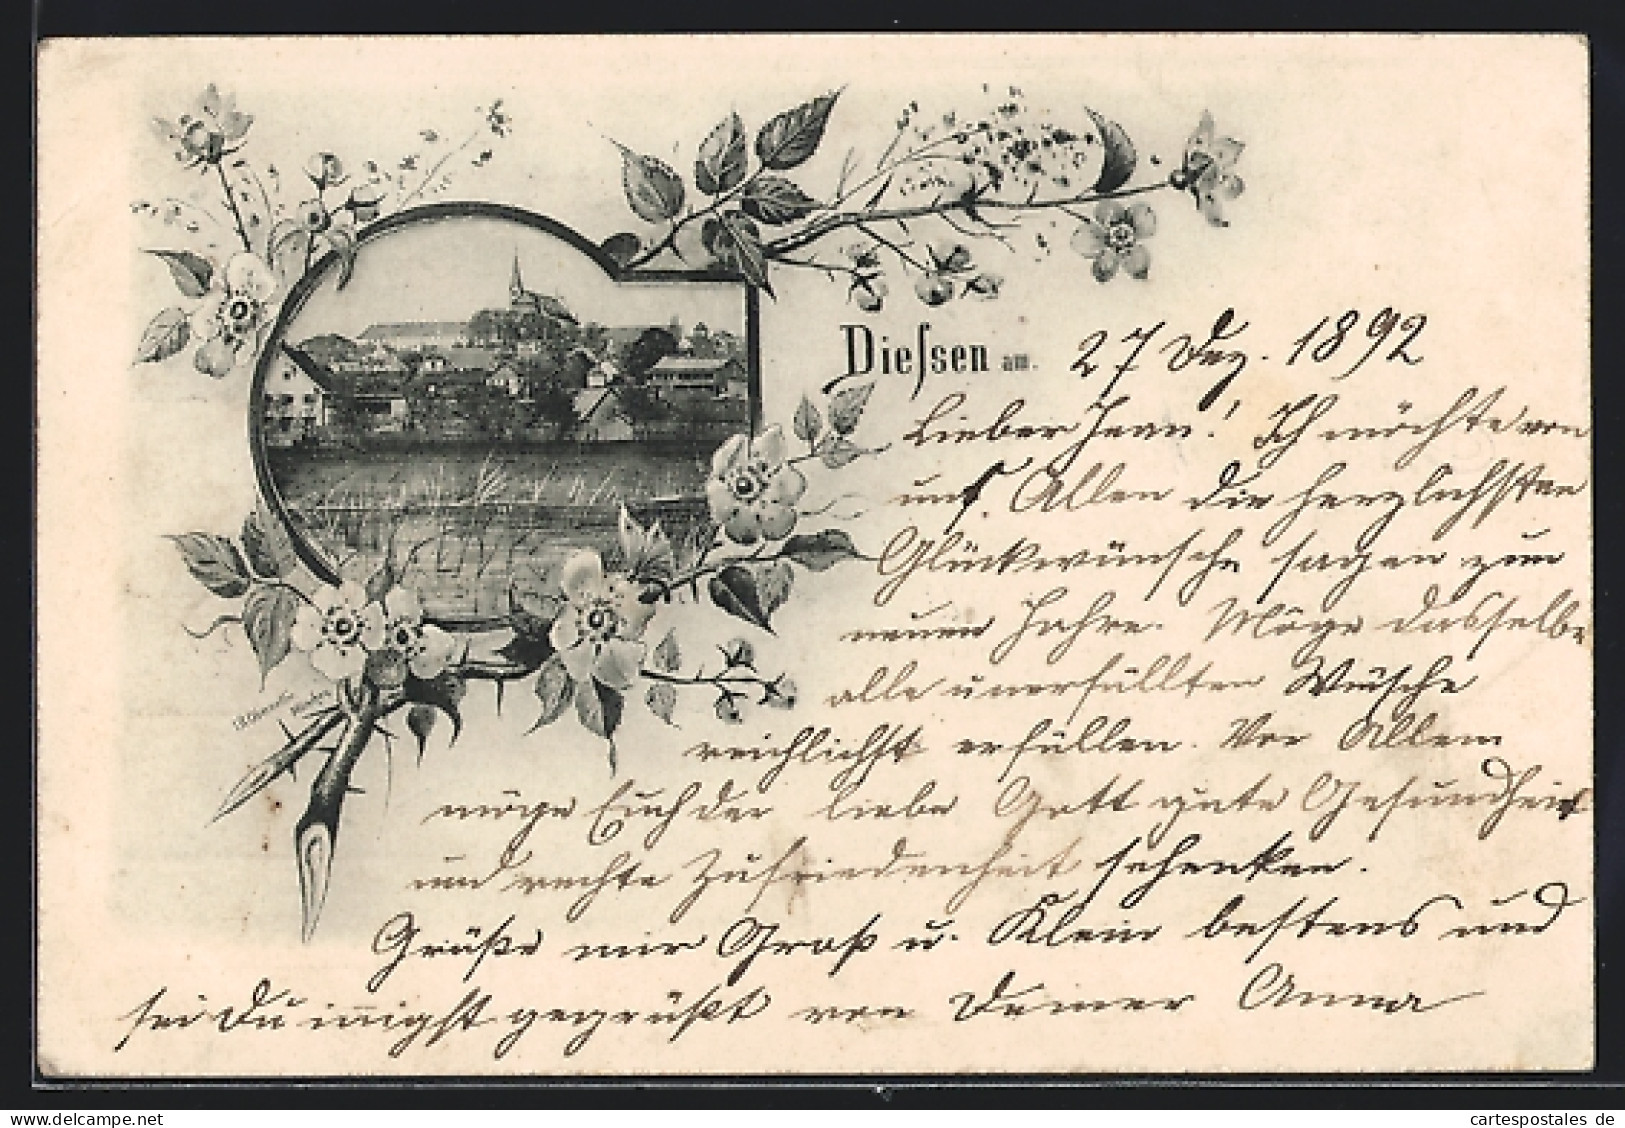 Dieſsen am. 27 Dez. 1892
Lieber Jean! Ich möchte von
uns Allen die herzlichsten
Glückwünsche sagen zum
neuen Jahre. Möge dasselbe
alle unerfüllten Wünsche
reichlichst erfüllen. Vor Allem
möge Euch der liebe Gott gute Gesundheit
und rechte Zufriedenheit schenken.
Grüße mir Groß u. Klein bestens und
sei Du innigst gegrüßt von Deiner Anna
cartespostales de